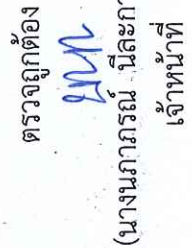 ตรวจถูกต้อง
(นางนภาภรณ์
เจ้าหน้าที่